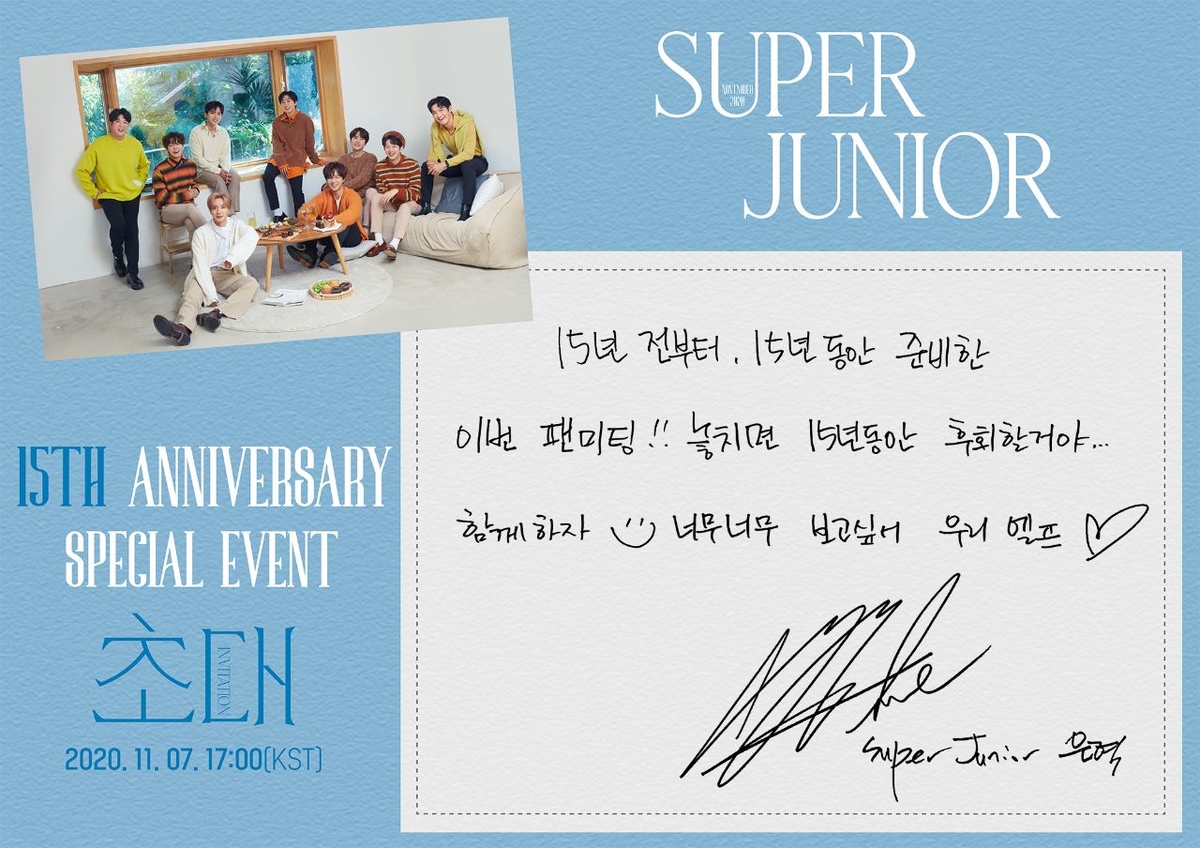 SUPER
NOVEMBER
2020
JUNIOR
15년 전부터, 15년 동안 준비한
이번 팬미팅!! 놓치면 15년동안 후회할거야...
함께하자 너무너무 보고싶어 우리 엘프 ♡
Super Junior 은혁
15TH ANNIVERSARY
SPECIAL EVENT
초대
INVITATION
2020. 11. 07. 17:00(KST)